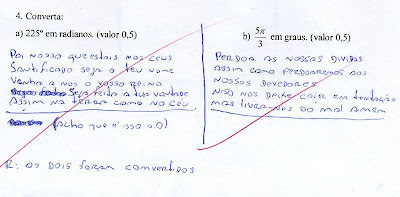 4. Converta:
a) 225º em radianos. (valor 0,5)
Pai nosso que estais nos ceus
Santificado seja o teu nome
Venha a nos o vosso reino
Seja feita a tua vontade
Assim na terra como no céu
(Acho que é isso o.O)
b) 5π/3 em graus. (valor 0,5)
Perdoa as nossas dividas
Assim como perdoaremos aos
nossos devedores
Não nos deixe cair em tentação
mas livrai-nos do mal Amem
R: os dois foram convertidos